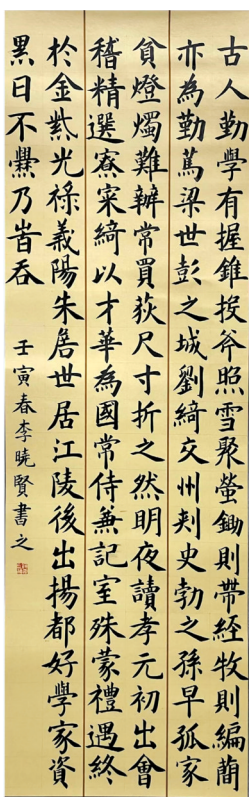 古人勤學有握錐投斧照雪聚螢鋤則帶經牧則編蕳
亦為勤篤梁世彭之城劉綺交州刾史勃之孫早孤家
貧燈燭難辦常買荻尺寸折之然明夜讀孝元初出會
稽精選寮寀綺以才華為國常侍兼記室殊蒙禮遇終
於金紫光祿義陽朱詹世居江陵後出揚都好學家資
累日不爨乃旹吞
壬寅春李曉賢書之